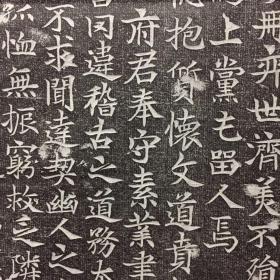 弈世濟美不殞
上黨屯留人焉
抱質懷文道賁
府君奉守素業書
違稽古之道務
不求聞達契幽人之
恤無振窮救之隣